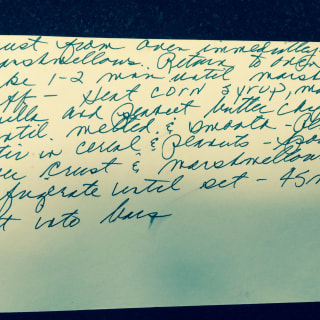 ust from oven immediately
arshmellows. Return to oven
ke 1-2 min until marsh
ff - Heat corn syrup, ma
illa and Peanut butter chi
until melted & smooth -
tir in cereal & Peanuts -
er crust & marshmellow
efrigerate until set - 45 m
t into bars